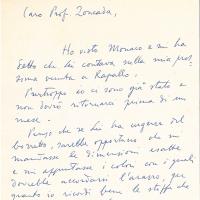 Caro Prof. Zoncada,
Ho visto Monaco e mi ha
detto che lei contava sulla mia pros
sima venuta a Rapallo.
Purtroppo io ci sono già stato e
non dovrò ritornare prima di un
mese.
Penso che se lei ha urgenza del
bozzetto, sarebbe opportuno che mi
mandasse le dimensioni esatte
e mi appuntasse i colori con i quali
dovrebbe accordarsi l'arazzo, per
quanto io ricordi bene le stoffe che